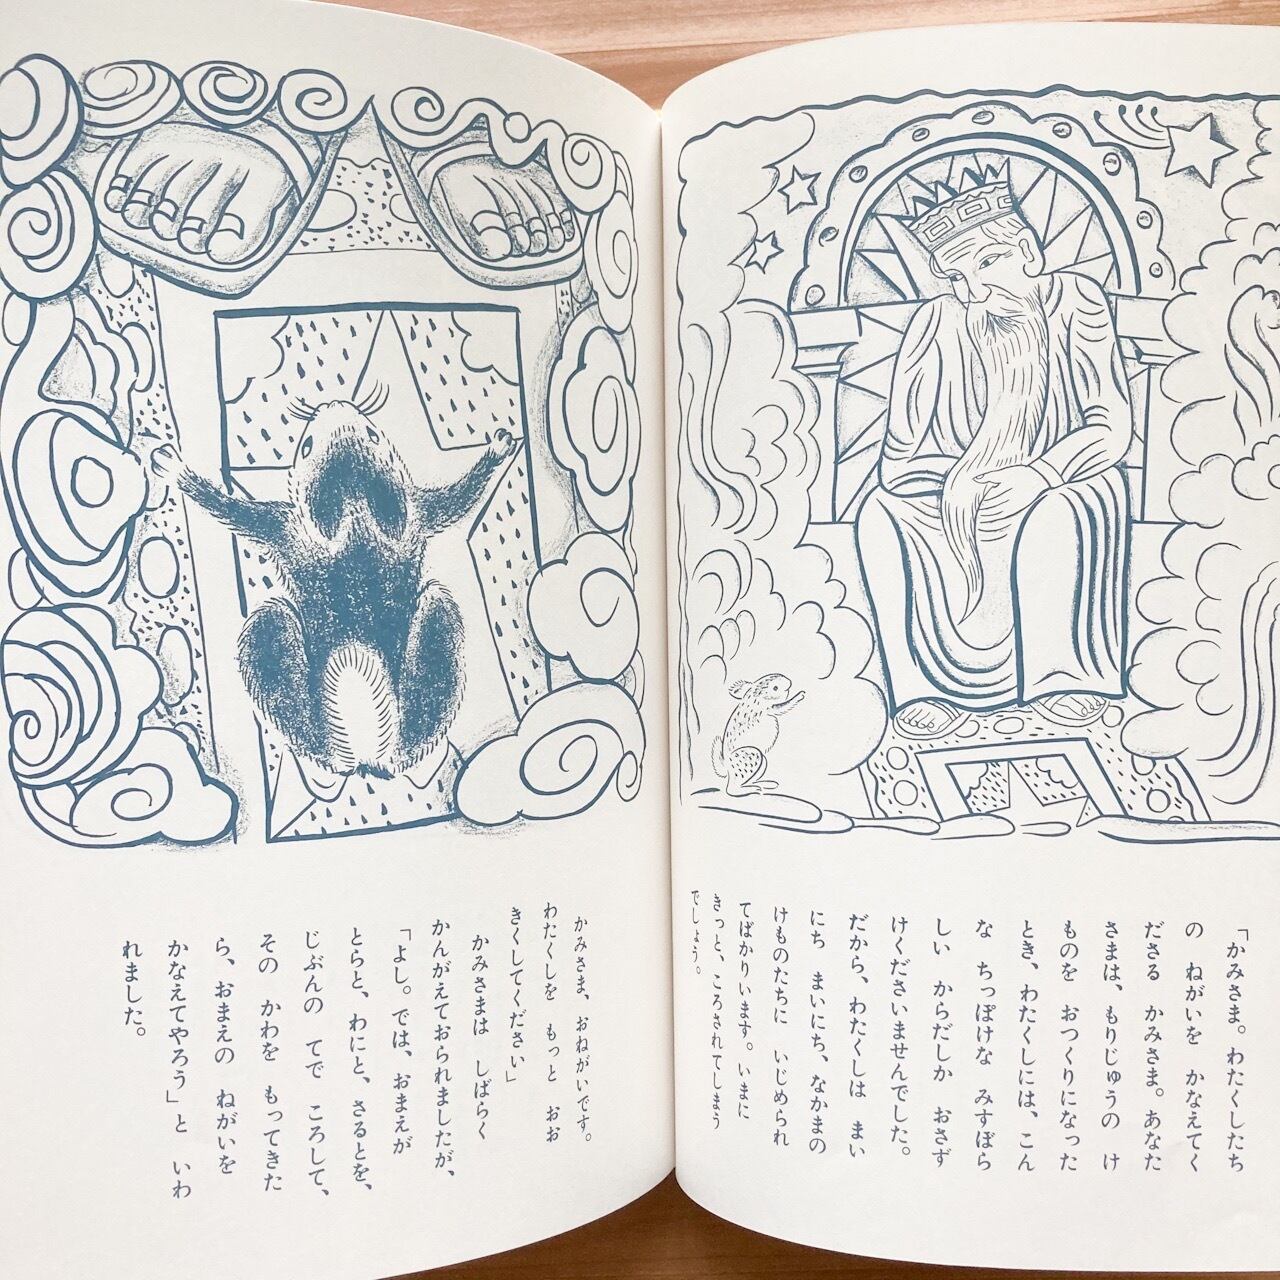 「かみさま。わたくしたち
の　ねがいを　かなえてく
ださる　かみさま。あなた
さまは、もりじゅうの　け
ものを　おつくりになった
とき、わたくしには、こん
な　ちっぽけな　みすぼら
しい　からだしか　おさず
けくださいませんでした。
だから、わたくしは　まい
にち　まいにち、なかまの
けものたちに　いじめられ
てばかりいます。いまに
きっと、ころされてしまう
でしょう。
かみさま、おねがいです。
わたくしを　もっと　おお
きくしてください」
かみさまは　しばらく
かんがえておられましたが、
「よし。では、おまえが
とらと、わにと、さるとを、
じぶんの　てで　ころして、
その　かわを　もってきた
ら、おまえの　ねがいを
かなえてやろう」と　いわ
れました。